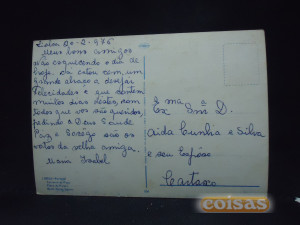 Lisboa 20-2-975
Meus bons amigos
não esquecendo o dia de
hoje cá estou com um
grande abraço a desejar
Felicidades e que contem
muitos dias destes, com
todos que vos são queridos,
pedindo a Deus Saude
Paz e Socego são os
votos da velha amiga.
Isabel
Exma Snra D.
Aida Cunha e Silva
e seu Espôso
Cartaxo
coisas